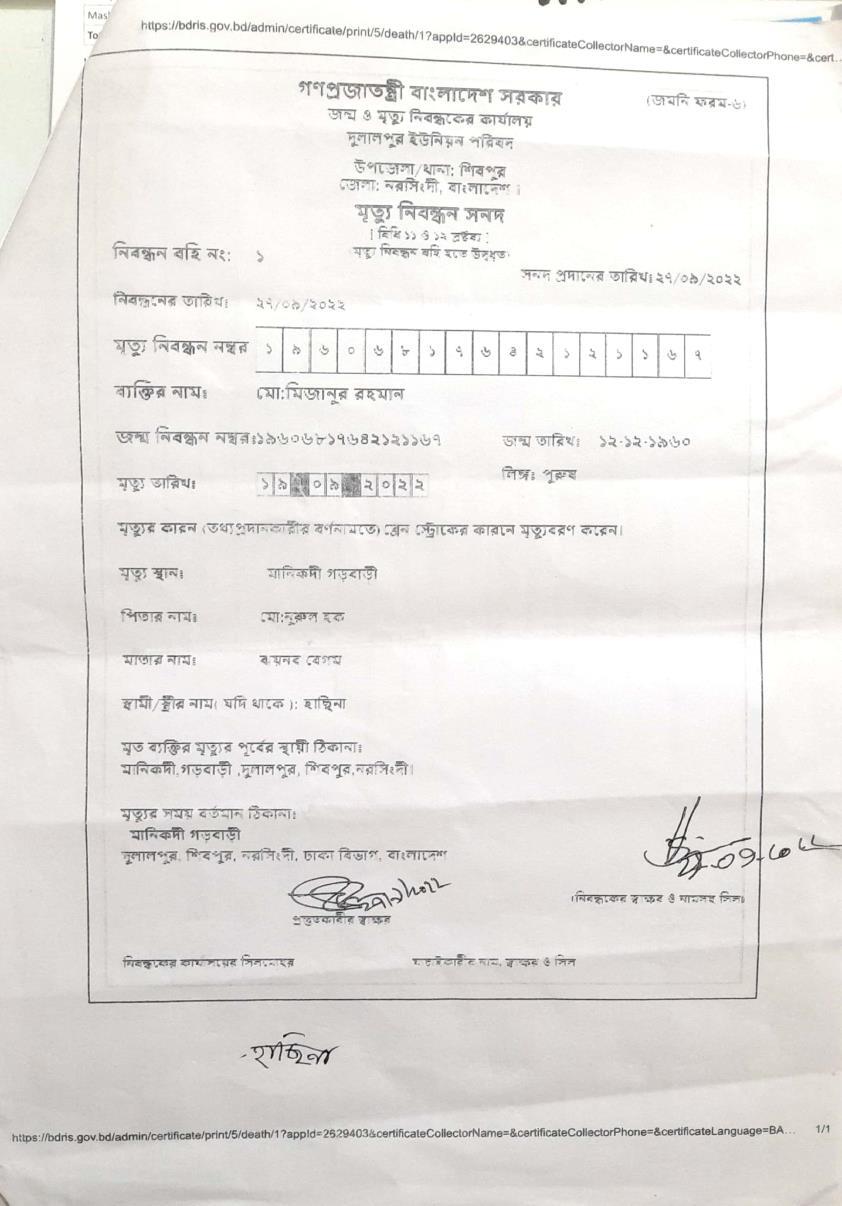 Mas
https://bdris.gov.bd/admin/certificate/print/5/death/1?appId=2629403&certificateCollectorName=&certificateCollectorPhone=&cert...
To
গণপ্রজাতন্ত্রী বাংলাদেশ সরকার
(জমনি ফরম-৬)
জন্ম ও মৃত্যু নিবন্ধকের কার্যালয়
দুলালপুর ইউনিয়ন পরিষদ
উপজেলা/থানা: শিবপুর
জেলা: নরসিংদী, বাংলাদেশ।
মৃত্যু নিবন্ধন সনদ
[বিধি ১১ ও ১২ দ্রষ্টব্য]
নিবন্ধন বহি নং: ১
মৃত্যু নিবন্ধন বহি হতে উদ্ধৃত
সনদ প্রদানের তারিখঃ ২৭/০৯/২০২২
নিবন্ধনের তারিখঃ ২৭/০৯/২০২২
মৃত্যু নিবন্ধন নম্বর ১ ৯ ৬ ০ ৬ ৮ ১ ৭ ৬ ৪ ২ ১ ২ ১ ১ ৬ ৭
ব্যক্তির নামঃ মো:মিজানুর রহমান
জন্ম নিবন্ধন নম্বরঃ১৯৬০৬৮১৭৬৪২১২১১৬৭ জন্ম তারিখঃ ১২-১২-১৯৬০
মৃত্যু তারিখঃ ১ ৯ ০ ৯ ২ ০ ২ ২ লিঙ্গঃ পুরুষ
মৃত্যুর কারন (তথ্যপ্রদানকারীর বর্ণনামতে) ব্রেন স্ট্রোকের কারনে মৃত্যুবরণ করেন।
মৃত্যু স্থানঃ মানিকদী গড়বাড়ী
পিতার নামঃ মো:নূরুল হক
মাতার নামঃ বেগম
স্বামী/স্ত্রীর নাম( যদি থাকে ): হাছিনা
মৃত ব্যক্তির মৃত্যুর পূর্বের স্থায়ী ঠিকানাঃ
মানিকদী,গড়বাড়ী ,দুলালপুর, শিবপুর,নরসিংদী।
মৃত্যুর সময় বর্তমান ঠিকানাঃ
মানিকদী গড়বাড়ী
দুলালপুর, শিবপুর, নরসিংদী, ঢাকা বিভাগ, বাংলাদেশ
প্রস্তুতকারীর স্বাক্ষর
(নিবন্ধকের স্বাক্ষর ও নামসহ সিল)
নিবন্ধকের কার্যালয়ের সিলমোহর
নাম, স্বাক্ষর ও সিল
হাছিনা
https://bdris.gov.bd/admin/certificate/print/5/death/1?appId=2629403&certificateCollectorName=&certificateCollectorPhone=&certificateLanguage=BA... 1/1